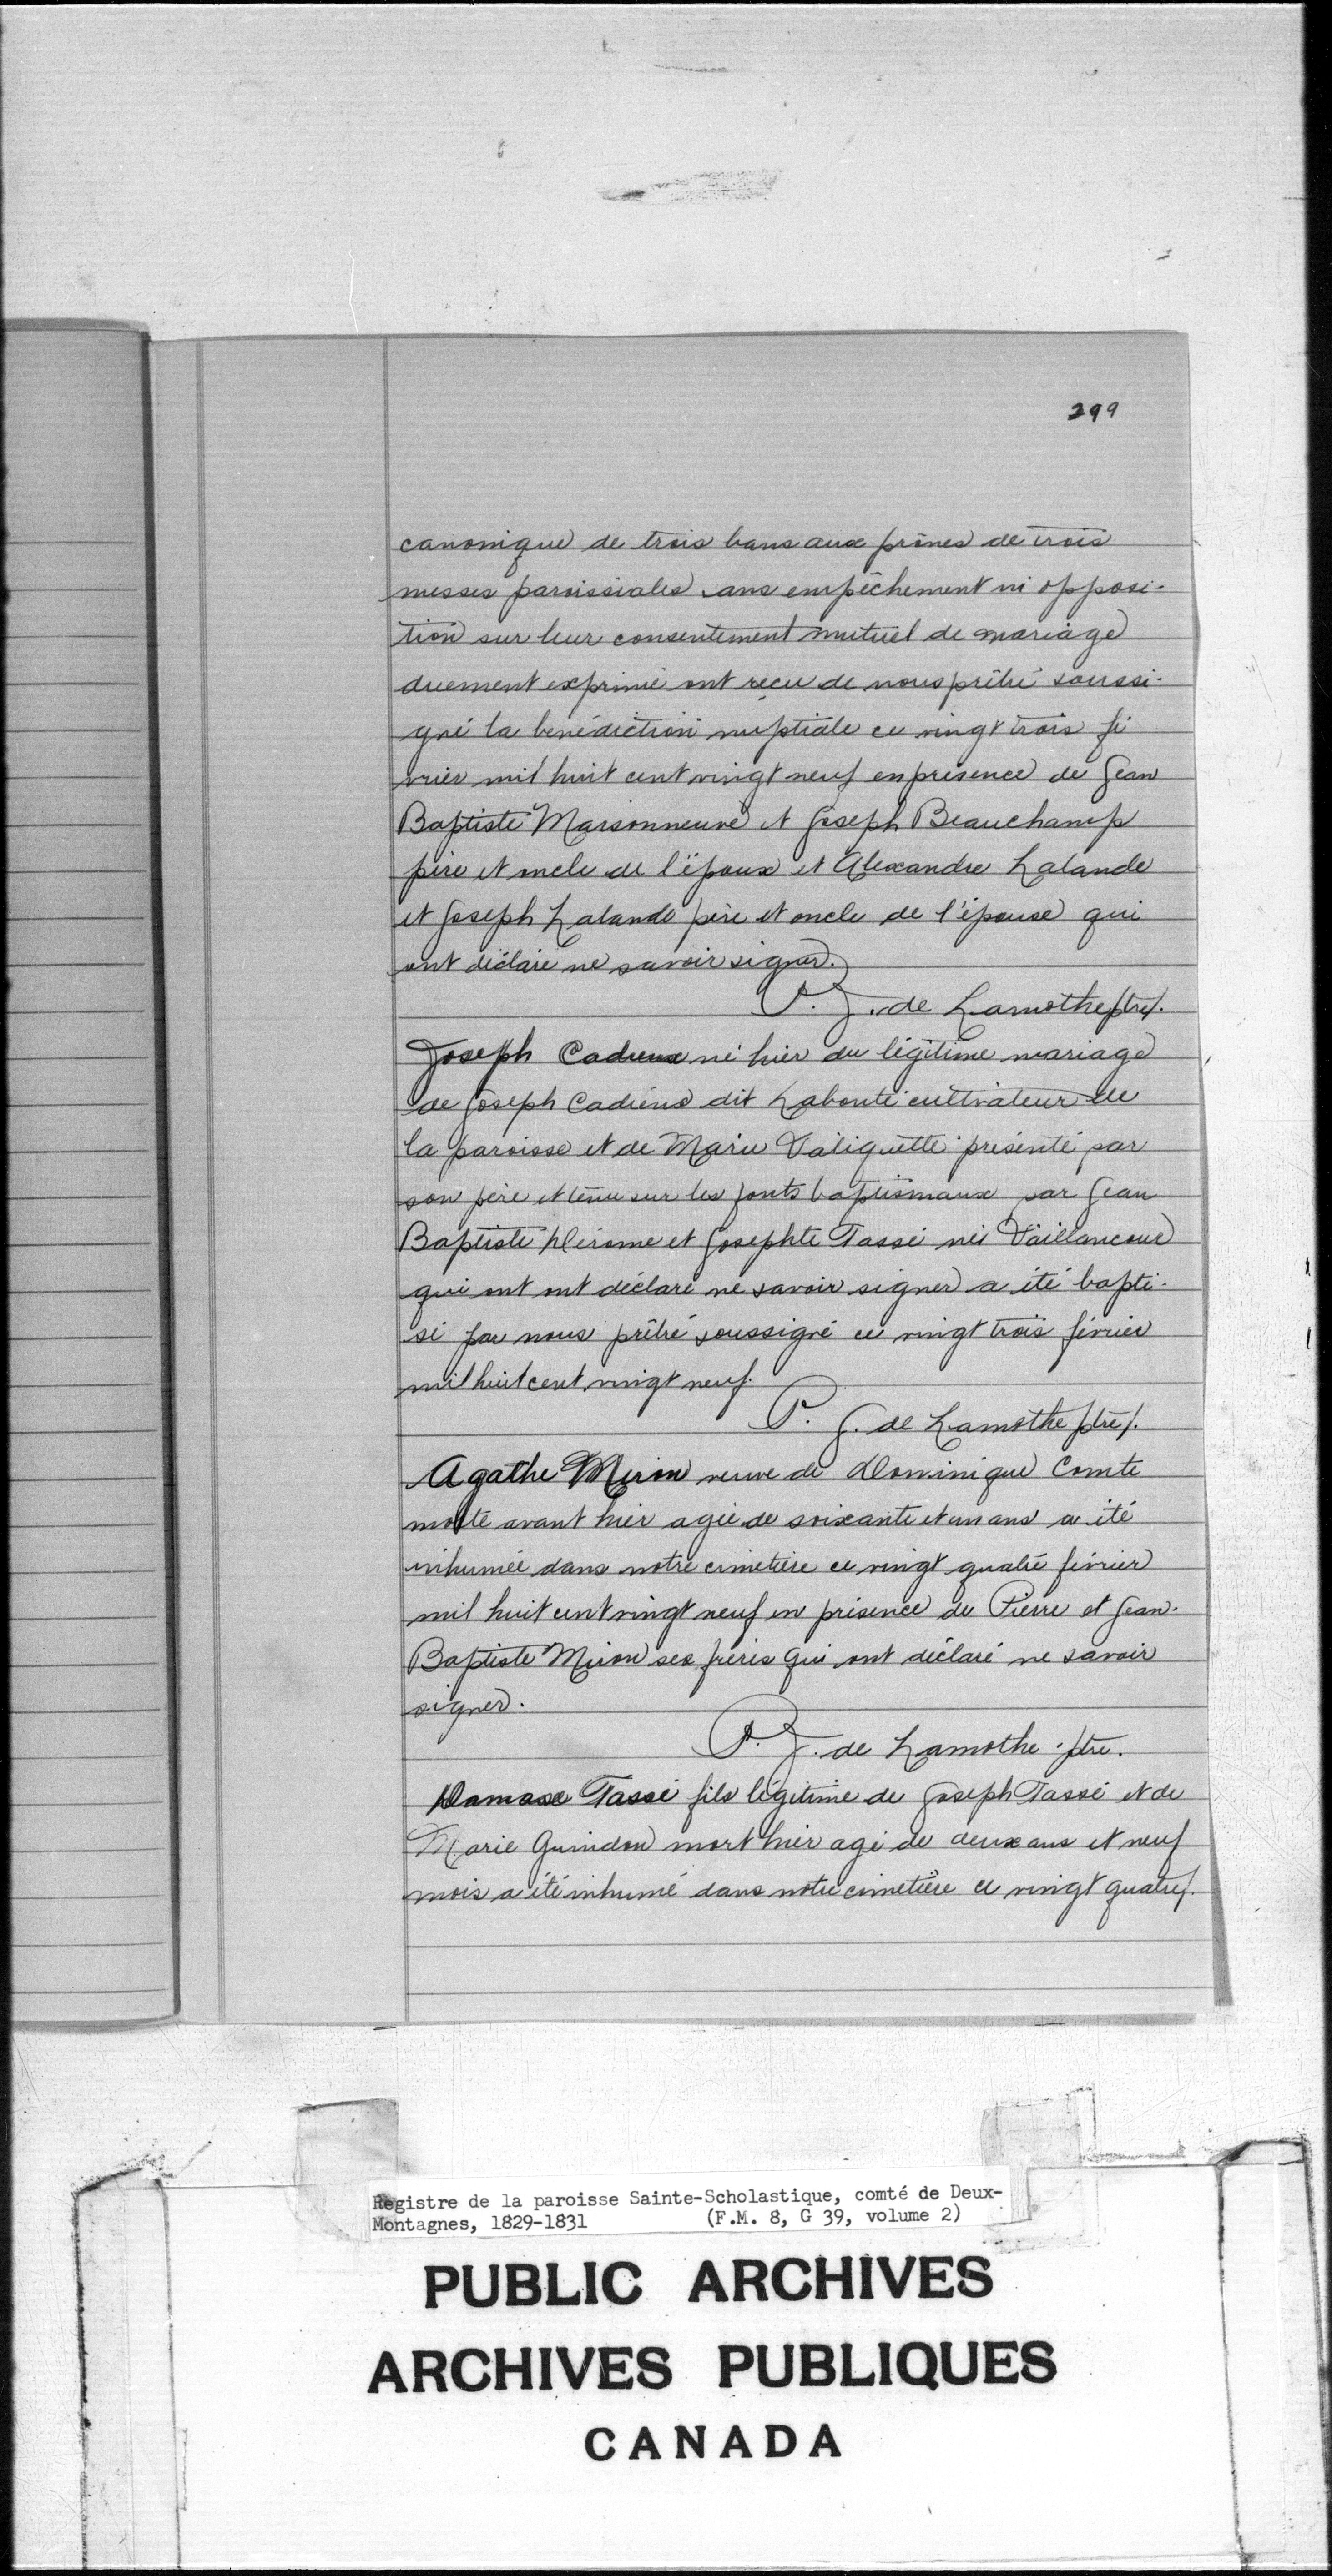 399
canonique de trois bans aux prônes de trois
messes paroissiales sans empêchement ni opposi-
tion sur leur consentement mutuel de mariage
duement exprimé ont reçu de nous prêtre soussi-
gné la bénédiction nuptiale ce vingt trois fé
vrier mil huit cent vingt neuf en présence de Jean
Baptiste Maisonneuve et Joseph Beauchamp
père et oncle de l'époux et Alexandre Lalande
et Joseph Lalande père et oncle de l'épouse qui
ont déclaré ne savoir signer.
P. J. de Lamothe ptre.
Joseph Cadieux né hier du légitime mariage
de Joseph Cadieux dit Labonté cultivateur de
la paroisse et de Marie Valiquette présenté par
son père et tenu sur les fonts baptismaux par Jean
Baptiste Dérome et Josephte Tassé née Vaillancour
qui ont ont déclaré ne savoir signer a été bapti-
sé par nous prêtre soussigné ce vingt trois février
mil huit cent vingt neuf.
P. J. de Lamothe ptre.
Agathe Miron veuve de Dominique Comte
morte avant hier agée de soixante et un ans a été
inhumée dans notre cimetière ce vingt quatre février
mil huit cent vingt neuf en présence de Pierre et Jean-
Baptiste Miron ses frères qui ont déclaré ne savoir
signer.
P. J. de Lamothe ptre.
Damase Tassé fils légitime de Joseph Tassé et de
Marie Guindon mort hier agé de deux ans et neuf
mois a été inhumé dans notre cimetière ce vingt quatre
Registre de la paroisse Sainte-Scholastique, comté de Deux-
Montagnes, 1829-1831 (F.M. 8, G 39, volume 2)
PUBLIC ARCHIVES
ARCHIVES PUBLIQUES
CANADA